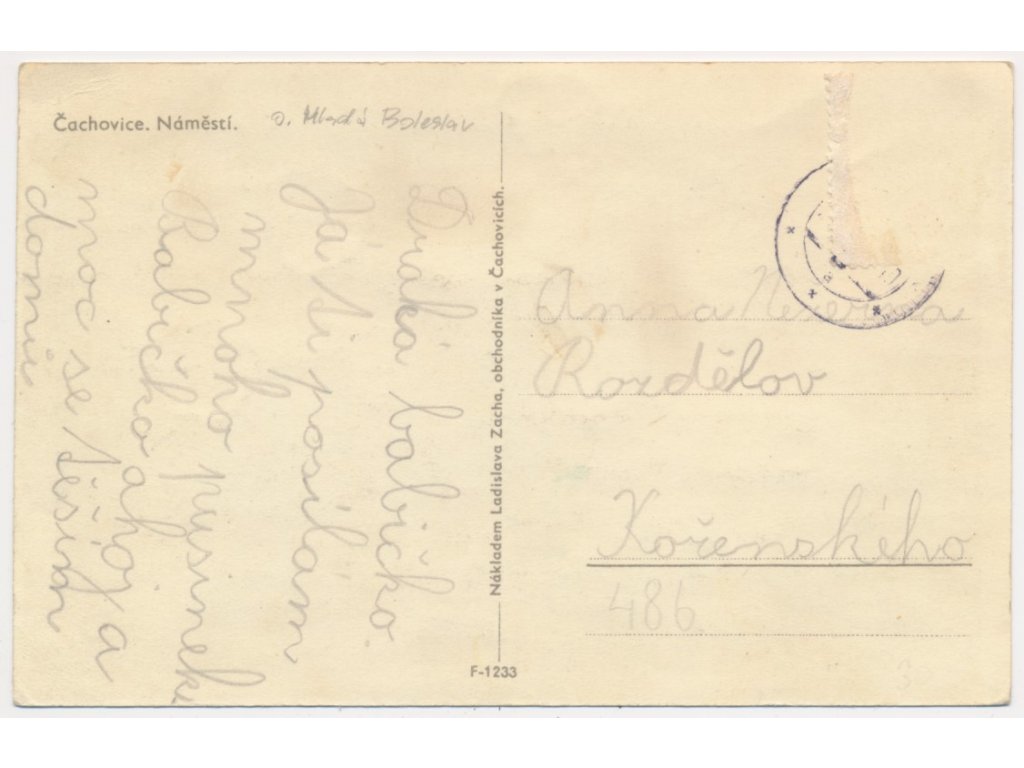 Čachovice. Náměstí.
o. Mladá Boleslav
Drahá babičko.
Já ti posílám
mnoho pusinek
Babičko ahoj a
moc se těším
domů
Nákladem Ladislava Zacha, obchodníka v Čachovicích.
F-1233
Anna
Rozdělov
Kořenského
486.